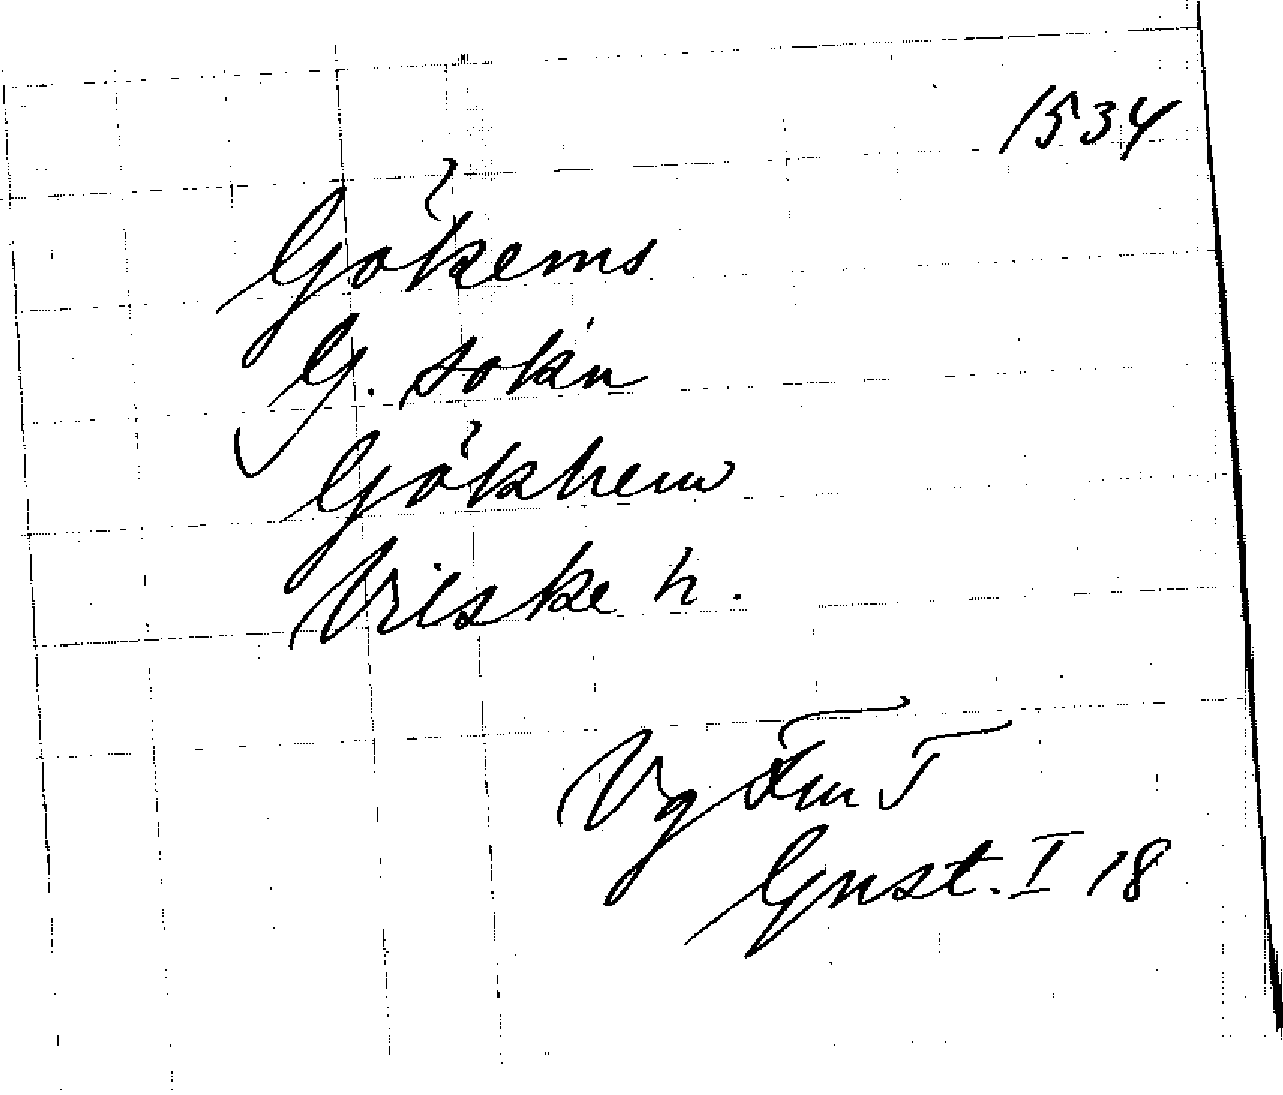 1534
Gökems
G. sokn
Gökhem
Vilske h.
Vg
Gust. I 18